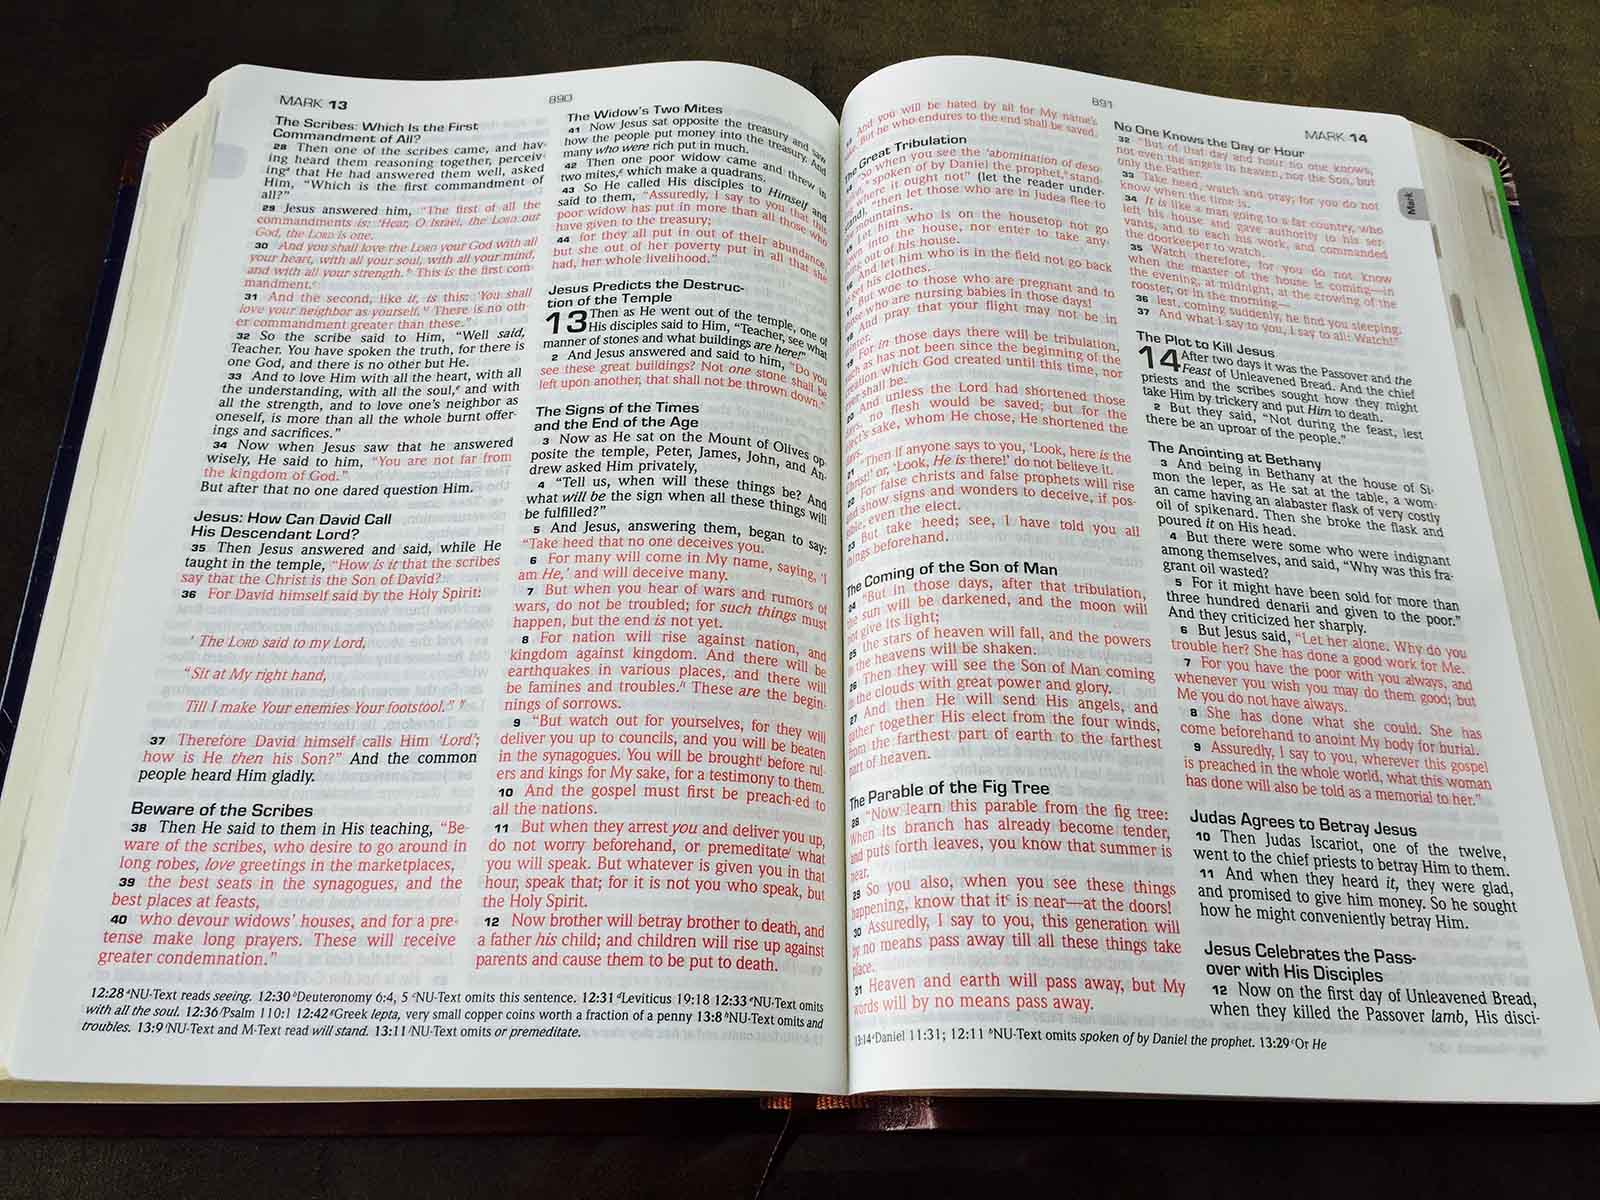 MARK 13
890
The Scribes: Which Is the First
Commandment of All?
28 Then one of the scribes came, and hav-
ing heard them reasoning together, perceiv-
ingᵃ that He had answered them well, asked
Him, “Which is the first commandment of
all?”
29 Jesus answered him, “The first of all the
commandments is: ‘Hear, O Israel, the LORD our
God, the LORD is one.
30 And you shall love the LORD your God with all
your heart, with all your soul, with all your mind,
and with all your strength.’ᵇ This is the first com-
mandment.ᶜ
31 And the second, like it, is this: ‘You shall
love your neighbor as yourself.’ᵈ There is no oth-
er commandment greater than these.”
32 So the scribe said to Him, “Well said,
Teacher. You have spoken the truth, for there is
one God, and there is no other but He.
33 And to love Him with all the heart, with all
the understanding, with all the soul,ᵉ and with
all the strength, and to love one’s neighbor as
oneself, is more than all the whole burnt offer-
ings and sacrifices.”
34 Now when Jesus saw that he answered
wisely, He said to him, “You are not far from
the kingdom of God.”
But after that no one dared question Him.
Jesus: How Can David Call
His Descendant Lord?
35 Then Jesus answered and said, while He
taught in the temple, “How is it that the scribes
say that the Christ is the Son of David?
36 For David himself said by the Holy Spirit:
‘ The LORD said to my Lord,
“Sit at My right hand,
Till I make Your enemies Your footstool.” ’ᶠ
37 Therefore David himself calls Him ‘Lord’;
how is He then his Son?” And the common
people heard Him gladly.
Beware of the Scribes
38 Then He said to them in His teaching, “Be-
ware of the scribes, who desire to go around in
long robes, love greetings in the marketplaces,
39 the best seats in the synagogues, and the
best places at feasts,
40 who devour widows’ houses, and for a pre-
tense make long prayers. These will receive
greater condemnation.”
The Widow’s Two Mites
41 Now Jesus sat opposite the treasury and saw
how the people put money into the treasury. And
many who were rich put in much.
42 Then one poor widow came and threw in
two mites,ᵍ which make a quadrans.
43 So He called His disciples to Himself and
said to them, “Assuredly, I say to you that this
poor widow has put in more than all those who
have given to the treasury;
44 for they all put in out of their abundance,
but she out of her poverty put in all that she
had, her whole livelihood.”
Jesus Predicts the Destruc-
tion of the Temple
13 Then as He went out of the temple, one of
His disciples said to Him, “Teacher, see what
manner of stones and what buildings are here!”
2 And Jesus answered and said to him, “Do you
see these great buildings? Not one stone shall be
left upon another, that shall not be thrown down.”
The Signs of the Times
and the End of the Age
3 Now as He sat on the Mount of Olives op-
posite the temple, Peter, James, John, and An-
drew asked Him privately,
4 “Tell us, when will these things be? And
what will be the sign when all these things will
be fulfilled?”
5 And Jesus, answering them, began to say:
“Take heed that no one deceives you.
6 For many will come in My name, saying, ‘I
am He,’ and will deceive many.
7 But when you hear of wars and rumors of
wars, do not be troubled; for such things must
happen, but the end is not yet.
8 For nation will rise against nation, and
kingdom against kingdom. And there will be
earthquakes in various places, and there will
be famines and troubles.ʰ These are the begin-
nings of sorrows.
9 “But watch out for yourselves, for they will
deliver you up to councils, and you will be beaten
in the synagogues. You will be broughtⁱ before rul-
ers and kings for My sake, for a testimony to them.
10 And the gospel must first be preach-ed to
all the nations.
11 But when they arrest you and deliver you up,
do not worry beforehand, or premeditateʲ what
you will speak. But whatever is given you in that
hour, speak that; for it is not you who speak, but
the Holy Spirit.
12 Now brother will betray brother to death, and
a father his child; and children will rise up against
parents and cause them to be put to death.
12:28 ᵃNU-Text reads seeing. 12:30 ᵇDeuteronomy 6:4, 5 ᶜNU-Text omits this sentence. 12:31 ᵈLeviticus 19:18 12:33 ᵉNU-Text omits
with all the soul. 12:36 ᶠPsalm 110:1 12:42 ᵍGreek lepta, very small copper coins worth a fraction of a penny 13:8 ʰNU-Text omits and
troubles. 13:9 ⁱNU-Text and M-Text read will stand. 13:11 ʲNU-Text omits or premeditate.
891
MARK 14
And you will be hated by all for My name’s
But he who endures to the end shall be saved.
Great Tribulation
“So when you see the ‘abomination of deso-
spoken of by Daniel the prophet, standing
where it ought not” (let the reader under-
“then let those who are in Judea flee to
mountains.
Let him who is on the housetop not go
into the house, nor enter to take any-
out of his house.
And let him who is in the field not go back
get his clothes.
But woe to those who are pregnant and to
those who are nursing babies in those days!
And pray that your flight may not be in
For in those days there will be tribulation,
such as has not been since the beginning of the
creation which God created until this time, nor
ever shall be.
And unless the Lord had shortened those
days, no flesh would be saved; but for the
elect’s sake, whom He chose, He shortened the
days.
21 “Then if anyone says to you, ‘Look, here is the
Christ!’ or, ‘Look, He is there!’ do not believe it.
22 For false christs and false prophets will rise
and show signs and wonders to deceive, if pos-
sible, even the elect.
23 But take heed; see, I have told you all
things beforehand.
The Coming of the Son of Man
24 “But in those days, after that tribulation,
the sun will be darkened, and the moon will
not give its light;
25 the stars of heaven will fall, and the powers
in the heavens will be shaken.
26 Then they will see the Son of Man coming
in the clouds with great power and glory.
27 And then He will send His angels, and
gather together His elect from the four winds,
from the farthest part of earth to the farthest
part of heaven.
The Parable of the Fig Tree
28 “Now learn this parable from the fig tree:
When its branch has already become tender,
and puts forth leaves, you know that summer is
near.
29 So you also, when you see these things
happening, know that itᶜ is near—at the doors!
30 Assuredly, I say to you, this generation will
by no means pass away till all these things take
place.
31 Heaven and earth will pass away, but My
words will by no means pass away.
No One Knows the Day or Hour
32 “But of that day and hour no one knows,
not even the angels in heaven, nor the Son, but
only the Father.
33 Take heed, watch and pray; for you do not
know when the time is.
34 It is like a man going to a far country, who
left his house and gave authority to his ser-
vants, and to each his work, and commanded
the doorkeeper to watch.
35 Watch therefore, for you do not know
when the master of the house is coming—in
the evening, at midnight, at the crowing of the
rooster, or in the morning—
36 lest, coming suddenly, he find you sleeping.
37 And what I say to you, I say to all: Watch!”
The Plot to Kill Jesus
14 After two days it was the Passover and the
Feast of Unleavened Bread. And the chief
priests and the scribes sought how they might
take Him by trickery and put Him to death.
2 But they said, “Not during the feast, lest
there be an uproar of the people.”
The Anointing at Bethany
3 And being in Bethany at the house of Si-
mon the leper, as He sat at the table, a wom-
an came having an alabaster flask of very costly
oil of spikenard. Then she broke the flask and
poured it on His head.
4 But there were some who were indignant
among themselves, and said, “Why was this fra-
grant oil wasted?
5 For it might have been sold for more than
three hundred denarii and given to the poor.”
And they criticized her sharply.
6 But Jesus said, “Let her alone. Why do you
trouble her? She has done a good work for Me.
7 For you have the poor with you always, and
whenever you wish you may do them good; but
Me you do not have always.
8 She has done what she could. She has
come beforehand to anoint My body for burial.
9 Assuredly, I say to you, wherever this gospel
is preached in the whole world, what this woman
has done will also be told as a memorial to her.”
Judas Agrees to Betray Jesus
10 Then Judas Iscariot, one of the twelve,
went to the chief priests to betray Him to them.
11 And when they heard it, they were glad,
and promised to give him money. So he sought
how he might conveniently betray Him.
Jesus Celebrates the Pass-
over with His Disciples
12 Now on the first day of Unleavened Bread,
when they killed the Passover lamb, His disci-
13:14 ᵃDaniel 11:31; 12:11 ᵇNU-Text omits spoken of by Daniel the prophet. 13:29 ᶜOr He
Mark